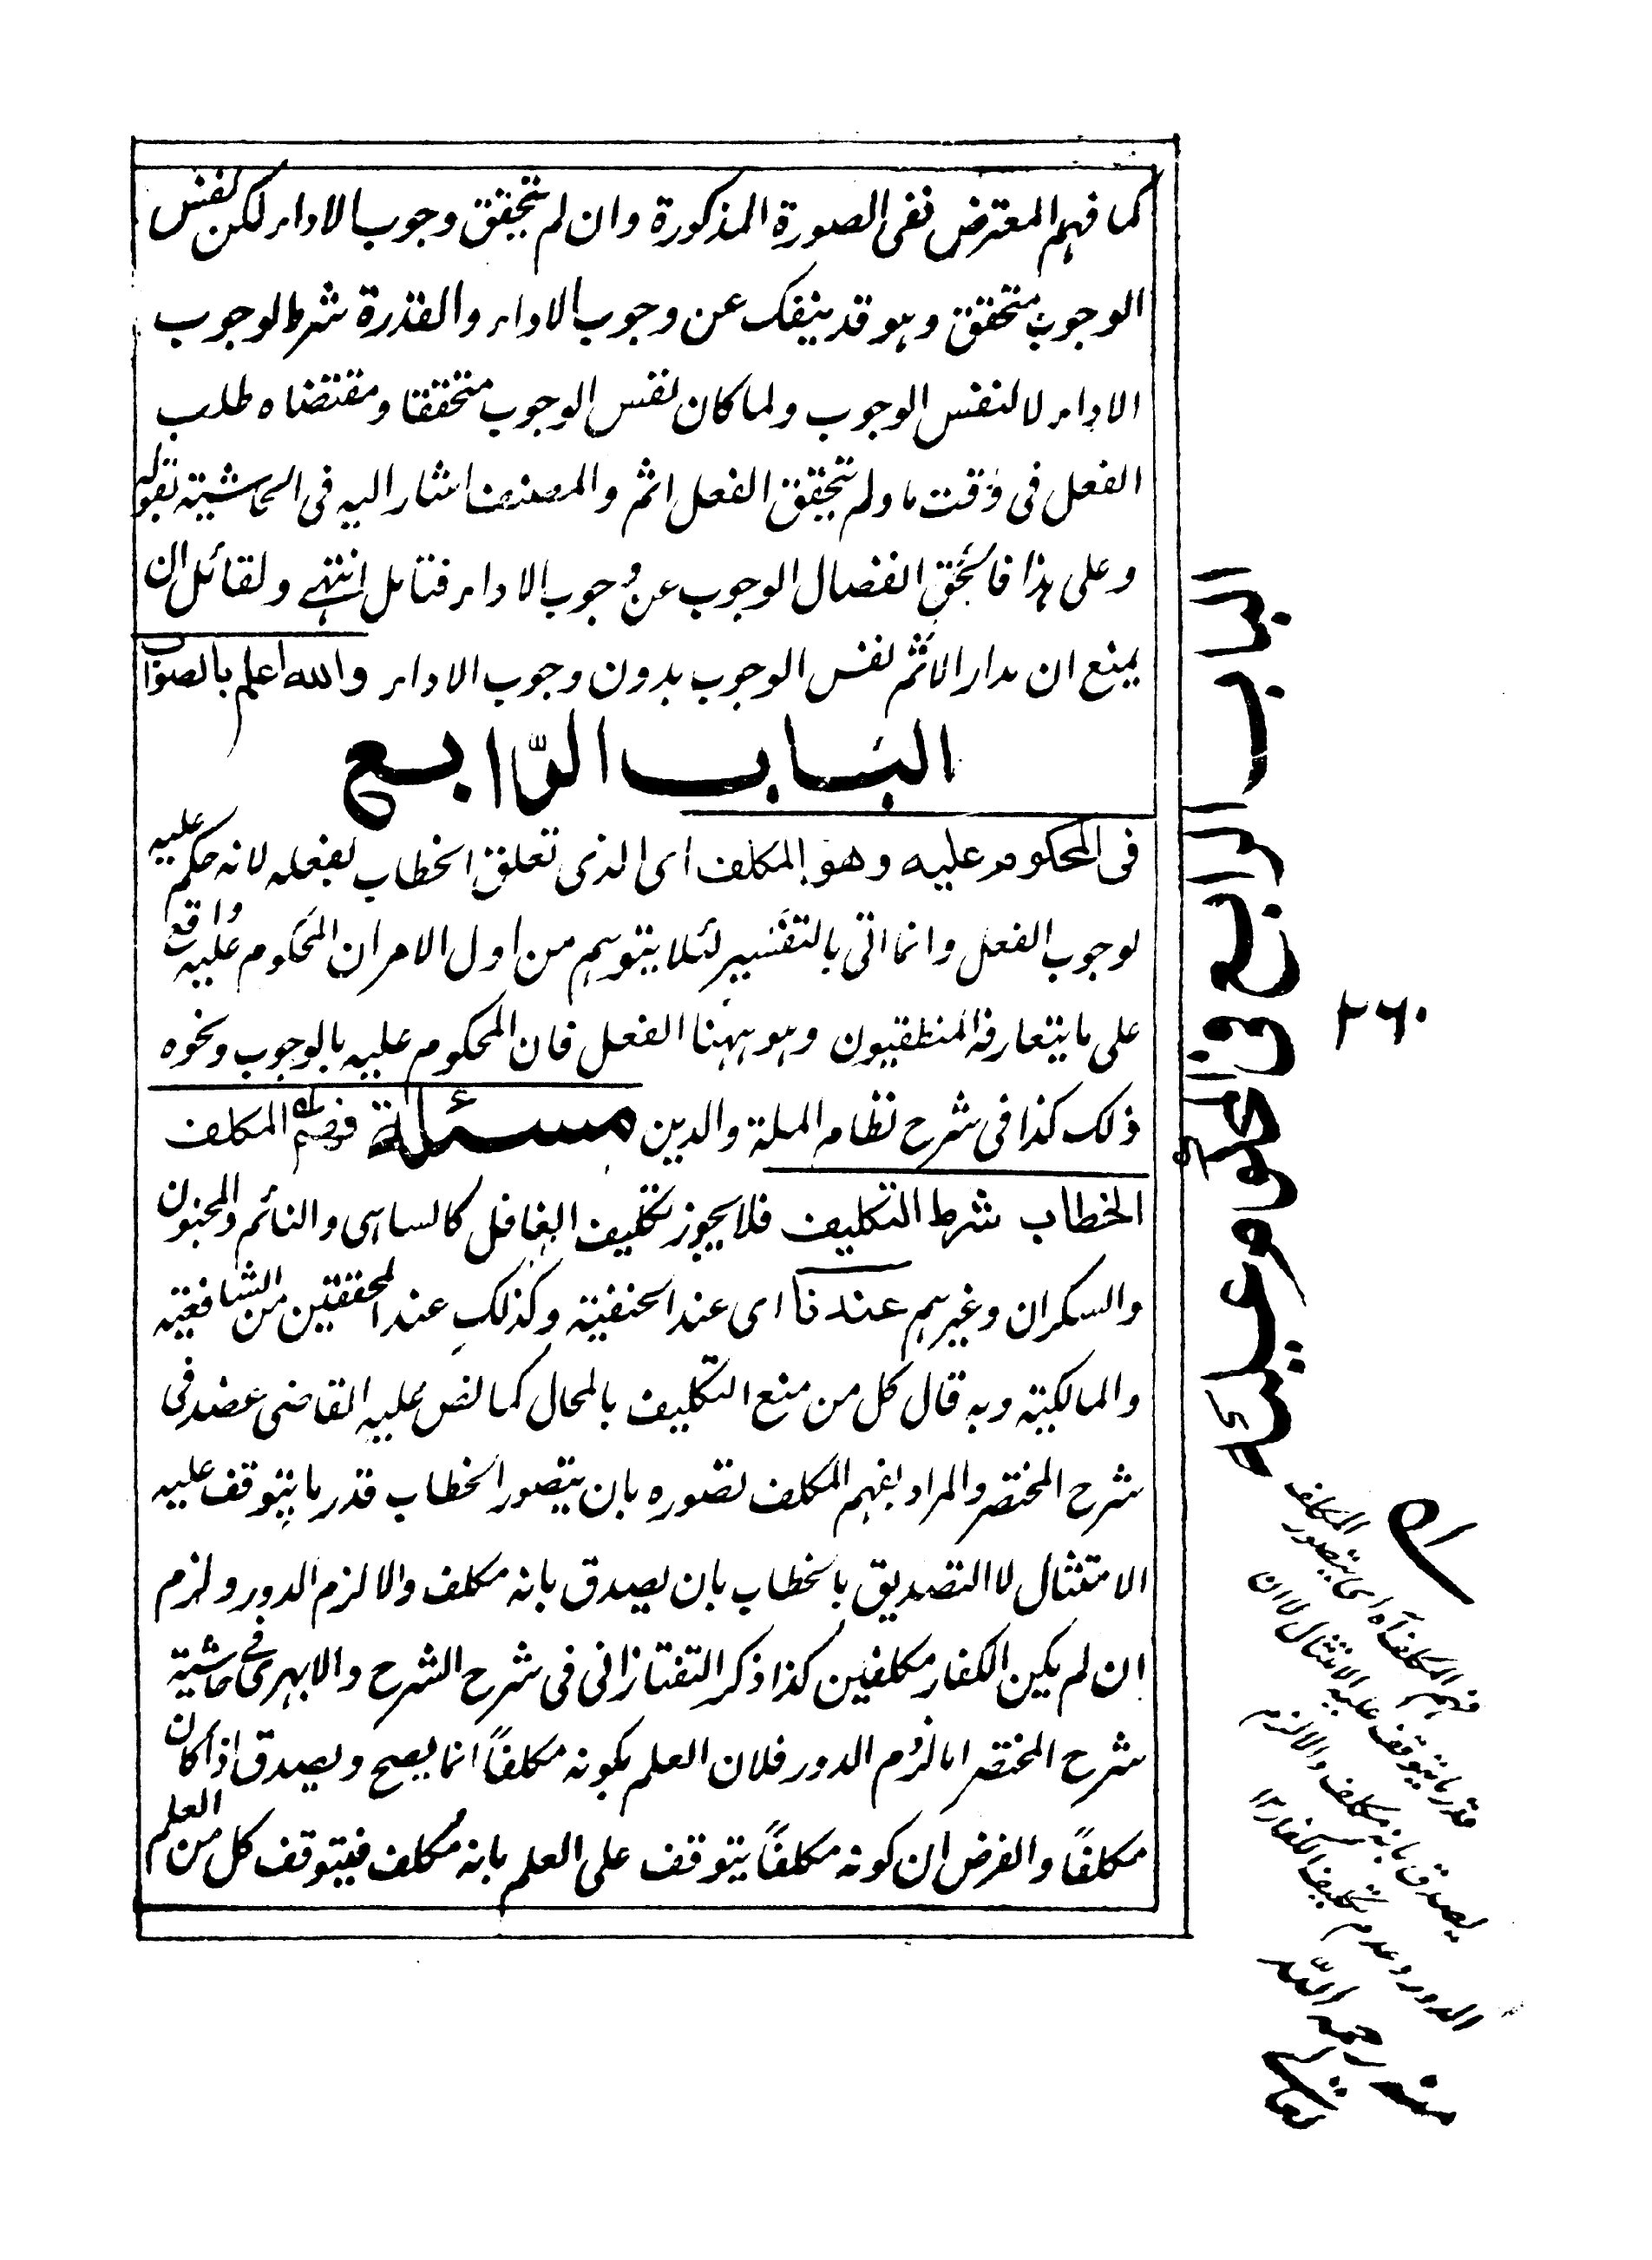 كما فهم المعترض نفى الصورة المذكورة وان لم يتحقق وجوب الاداء لكن نفس
الوجوب متحقق وهو قد ينفك عن وجوب الاداء والقدرة شرط لوجوب
الاداء لا لنفس الوجوب ولما كان نفس الوجوب متحققا ومقتضاه طلب
الفعل فى وقت ما ولم يتحقق الفعل اثم والمصنف اشار اليه فى الحاشية بقوله
وعلى هذا فالحق انفصال الوجوب عن وجوب الاداء فتامل انتهى ولقائل ان
يمنع ان مدار الاثم نفس الوجوب بدون وجوب الاداء والله اعلم بالصواب
الباب الرّابع
فى المحكوم عليه وهو المكلف اى الذى تعلق الخطاب بفعله لانه حكم عليه
بوجوب الفعل وانما اتى بالتفسير لئلا يتوهم من اول الامر ان المحكوم عليه واقع
على ما يتعارفه المنطقيون وهو ههنا الفعل فان المحكوم عليه بالوجوب ونحوه
ذلك كذا فى شرح نظام الملة والدين مسئلة فهم المكلف
الخطاب شرط التكليف فلا يجوز تكليف الغافل كالساهى والنائم والمجنون
والسكران وغيرهم عندنا اى عند الحنفية وكذلك عند المحققين من الشافعية
والمالكية وبه قال كل من منع التكليف بالمحال كما نص عليه القاضى عضد فى
شرح المختصر والمراد بفهم المكلف تصوره بان يتصور الخطاب قدر ما يتوقف عليه
الامتثال لا التصديق بالخطاب بان يصدق بانه مكلف والا لزم الدور ولزم
ان لم يكن الكفار مكلفين كذا ذكر التفتازانى فى شرح الشرح والابهرى فى حاشية
شرح المختصر اما لزوم الدور فلان العلم بكونه مكلفاً انما يصح ويصدق اذا كان
مكلفاً والفرض ان كونه مكلفاً يتوقف على العلم بانه مكلف فيتوقف كل من العلم
الباب الرابع فى المحكوم عليه
٢٦٠
فهم المكلف آه اى يتصور المكلف
قدر ما يتوقف عليه الامتثال لا ان
يصدق بانه مكلف والا لزم
الدور وعدم تكليف الكفار ١٢
منه رحمه الله
تعالى